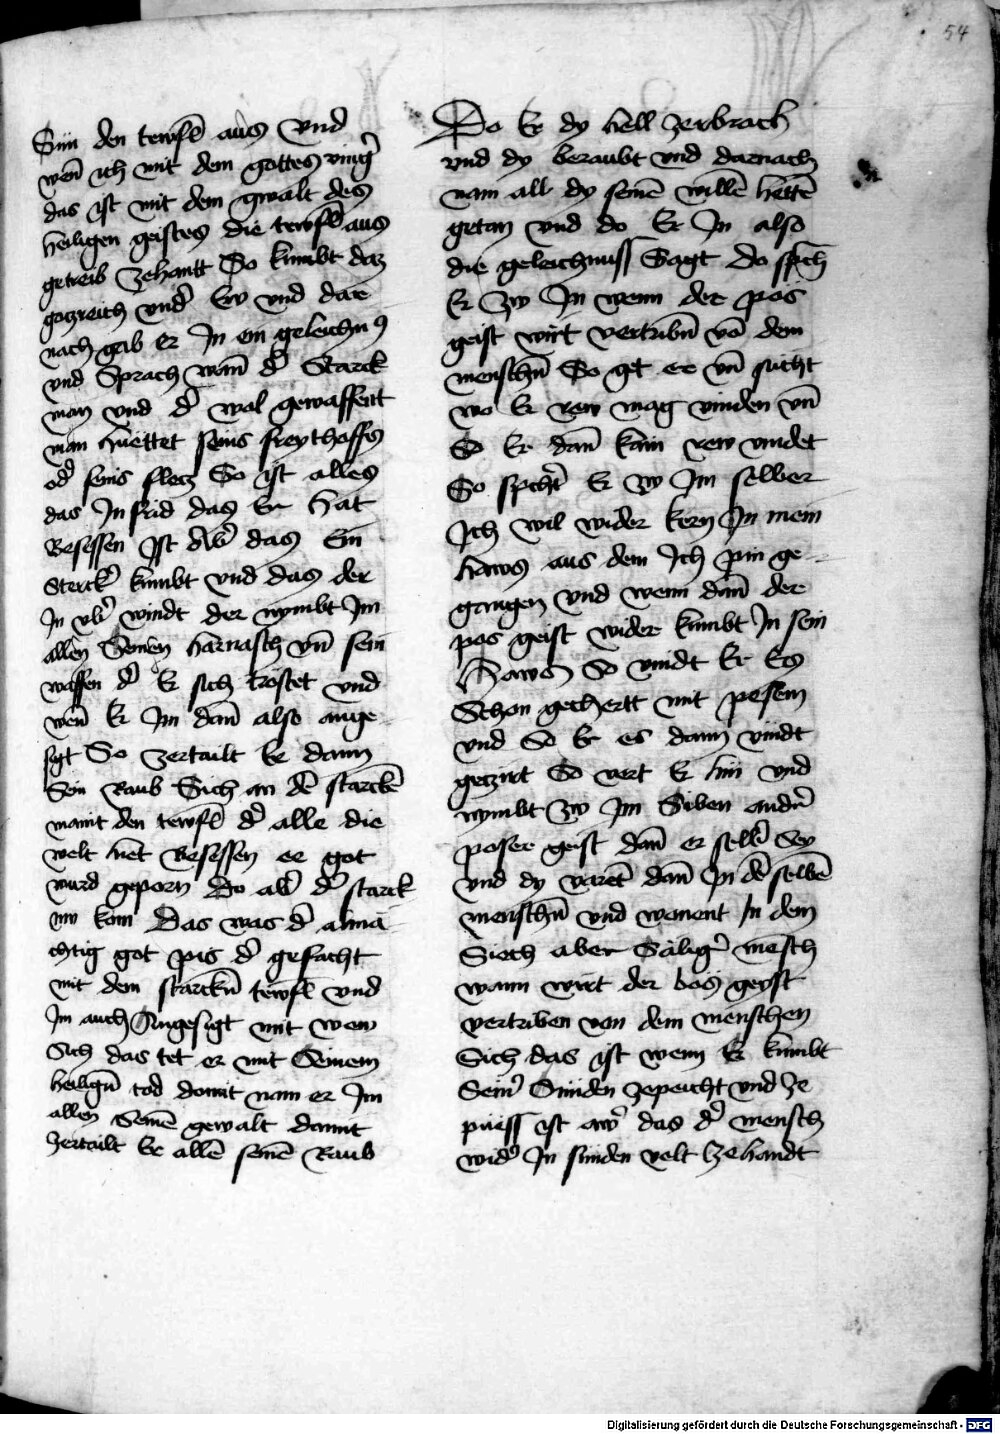 54
Sün den tewfl̄ aus vnd
wen̄ ich mit dem gottes vinḡ
das ist mit dem gwalt des
heiligen geistes die tewfl̄ aus
getreib zehantt So kumbt daz
gotzreich vnd̄ Ew vnd dar
nach gab er In ein geleichnus
vnd Sprach wan̄ d̄ Starck
man vnd d̄ wol gewaffentt
man huettet seins freythoffs
od̄ seins flecz So ist alles
das In frid das Er hat
Besessen Ist Ab̄ das Ein
sterck̄ kumbt vnd das der
In vb̄ windt der nymbt Im
allen Seinen harnasch vn̄ sein
waffen d̄ Er sich trostet vnd
wen̄ Er Im dan̄ also ange
sigt So zertailt Er dann
Sein Raub Sich an de̅ starcke̅
maint den tewfl̄ d̄ alle die
welt het Besessen ee got
ward geporn Do ab̄ d̄ starck
nw kom Das was d̄ alma
chtig got pis d̄ gefacht
mit dem starckn̄ tewfl vnd
Im auch Angesigt mit wem
Sich das tet er mit Seinem
heilign̄ tod domit nam er Im
allen Seine̅ gewalt damit
zertailt Er alle̅ seine̅ Raub
Do Er dy hell zerbrach
vnd dy beraubt vnd darnach
nam all dy seine̅ wille̅ hette̅
getan vnd do Er In also
die geleichnuss Sagt do sp̄ch
Er Zw In wenn der pös
geist wirt vertribn̄ vo̅ dem
menschn̄ So get er vn̄ sucht
wo Er rew mag vinden vn̄
So Er dan̄ kain rew vindet
So spch̄t Er Zw Im selber
Ich wil wider kern In mein
haws aus dem Ich pin ge-
gangen vnd wenn dan̄ der
pos geist wider kumbt In sein
Haws So vindt Er Es
Schon gechertt mit pesem
vnd So Er es dann vindt
geczirt So vert Er hin vnd
nymbt Zw Im Siben andr̄
poser geist dan̄ er selb̄ Sey
vnd dy varet̄ dan̄ In de̅ selbe̅
menschn̄ vnd wonent In dem
Siech aber Säliḡ mensch
wann wirt der bös geyst
vertriben von dem menschen
Sich das ist wenn Er kumbt
Sein̄ Sünden zepeicht vnd ze
püess ist aw̄ das d̄ mensch
wid̄ In sünden velt Zehandt
Digitalisierung gefördert durch die Deutsche Forschungsgemeinschaft - DFG